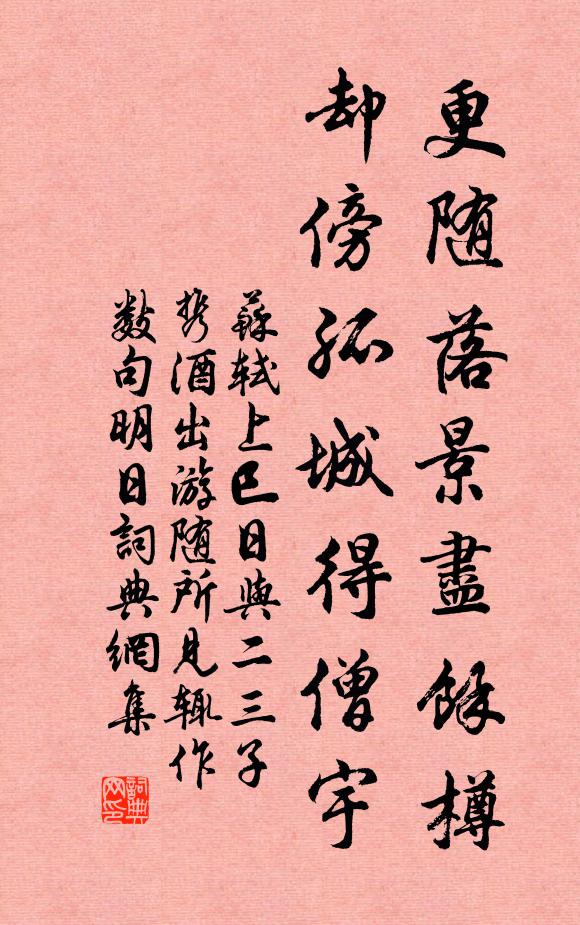 更随落景盡餘樽
却傍孤城得僧宇
蘇軾上巳日與二三子
携酒出游随所見輒作
數句明日詞典網集
詞典
网印